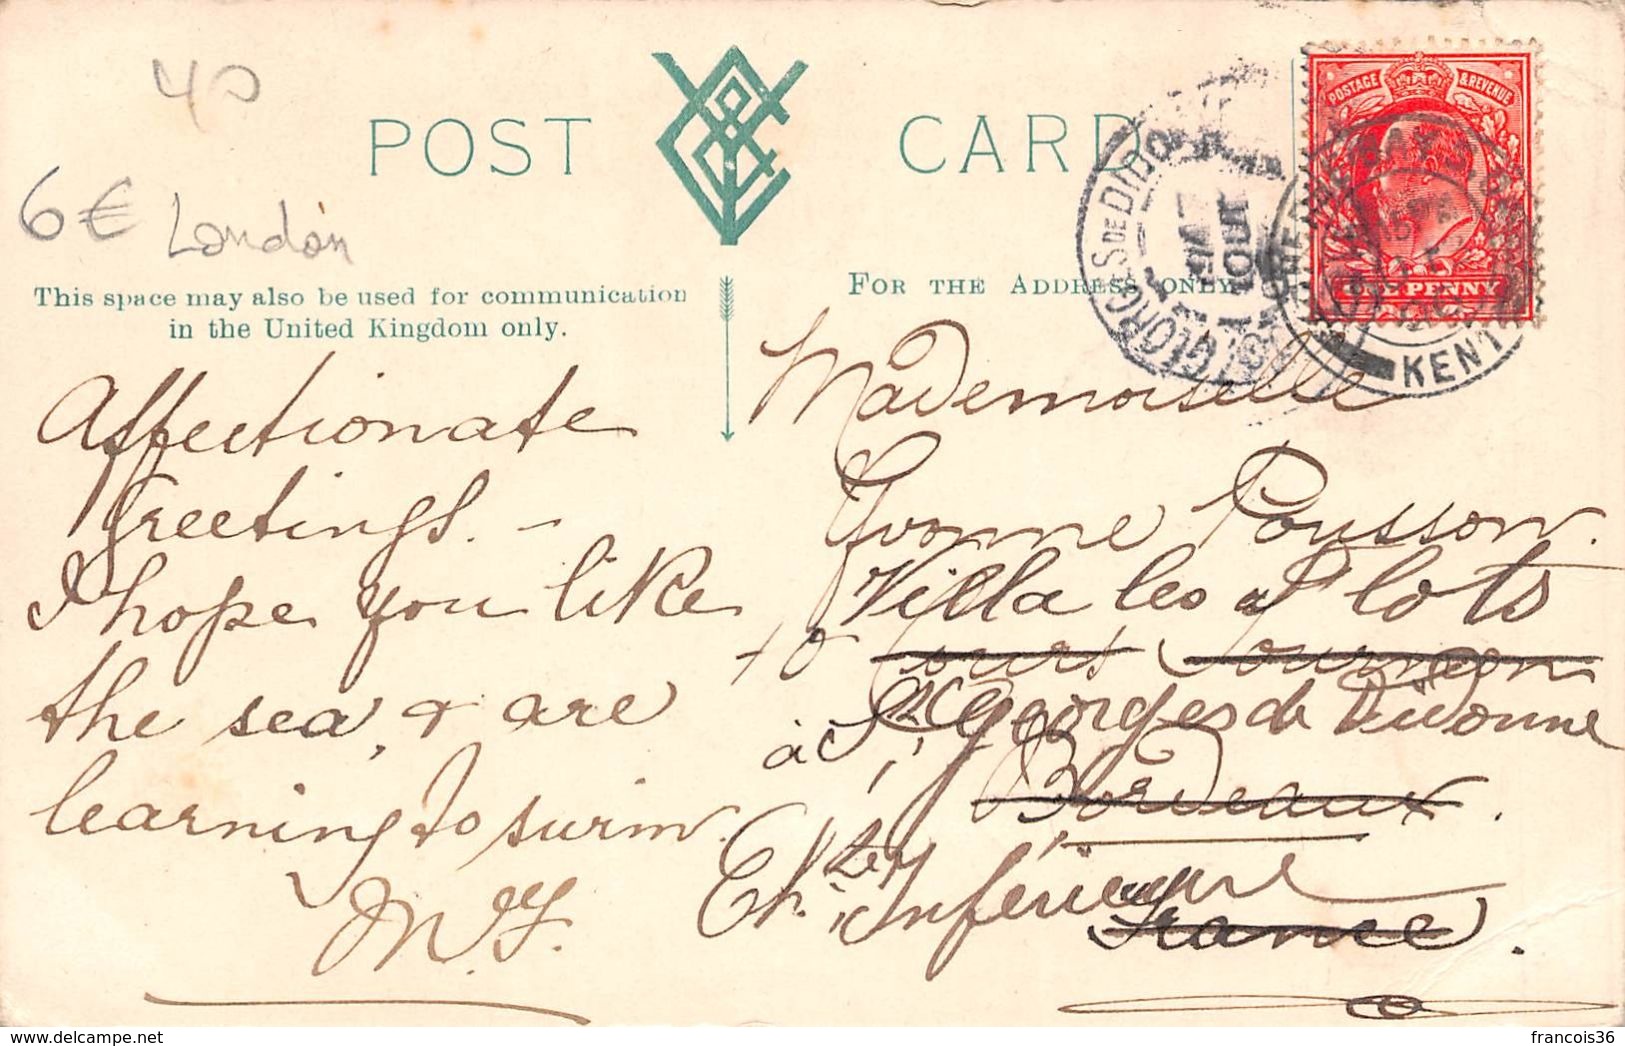 40
POST CARD
6€ London
This space may also be used for communication
in the United Kingdom only.
FOR THE ADDRESS ONLY
POSTAGE & REVENUE
ONE PENNY
KENT
GEORGES DE DIDO
AOUT
Affectionate
Greetings. -
I hope you like
the sea, & are
learning to swim.
M. Y.
Mademoiselle
Yvonne Pousson.
Villa les Plots
Cours Tournon
à St Georges de Didonne
Bordeaux.
Ch. Inférieure
France.
francois36